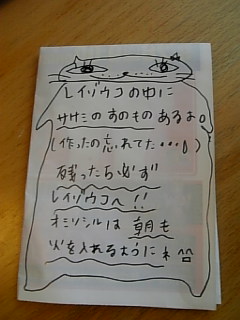 レイゾウコの中に
ササミのすのものあるよ。
(作ったの忘れてた…!)
残ったら必ず
レイゾウコへ!!
オミソシルは朝も
火を入れるようにネ